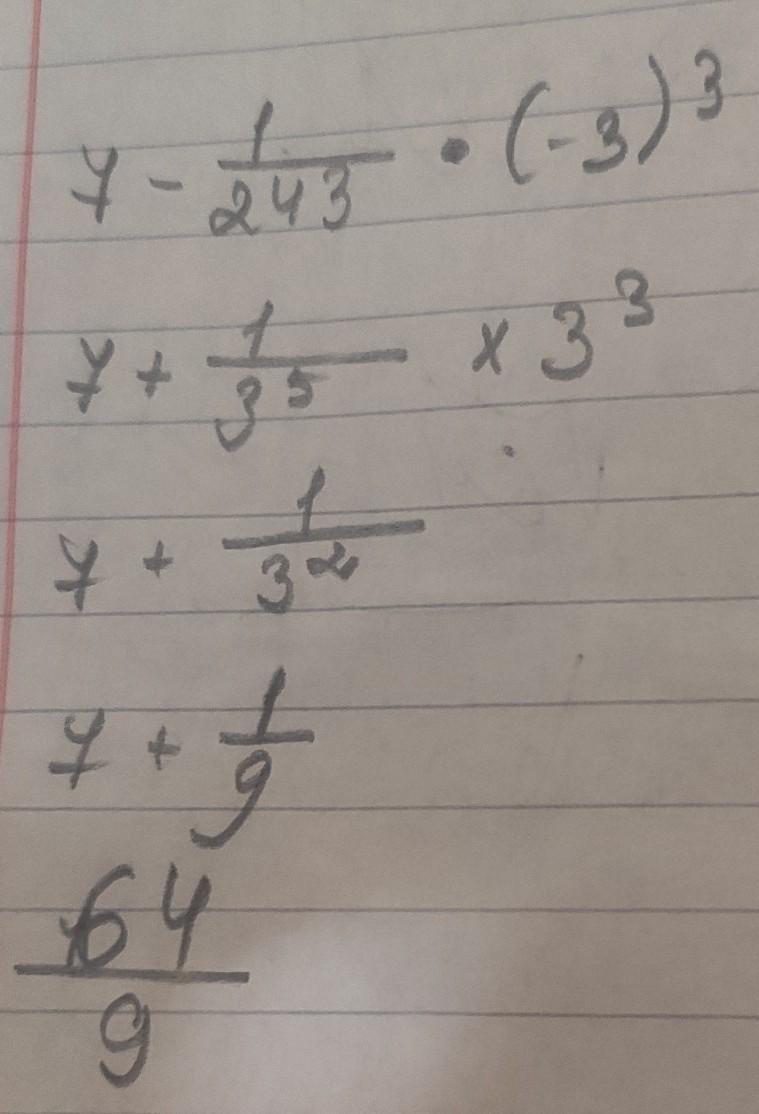 7 - 1/243 • (-3)³
7 + 1/3⁵ x 3³
7 + 1/3²
7 + 1/9
64/9